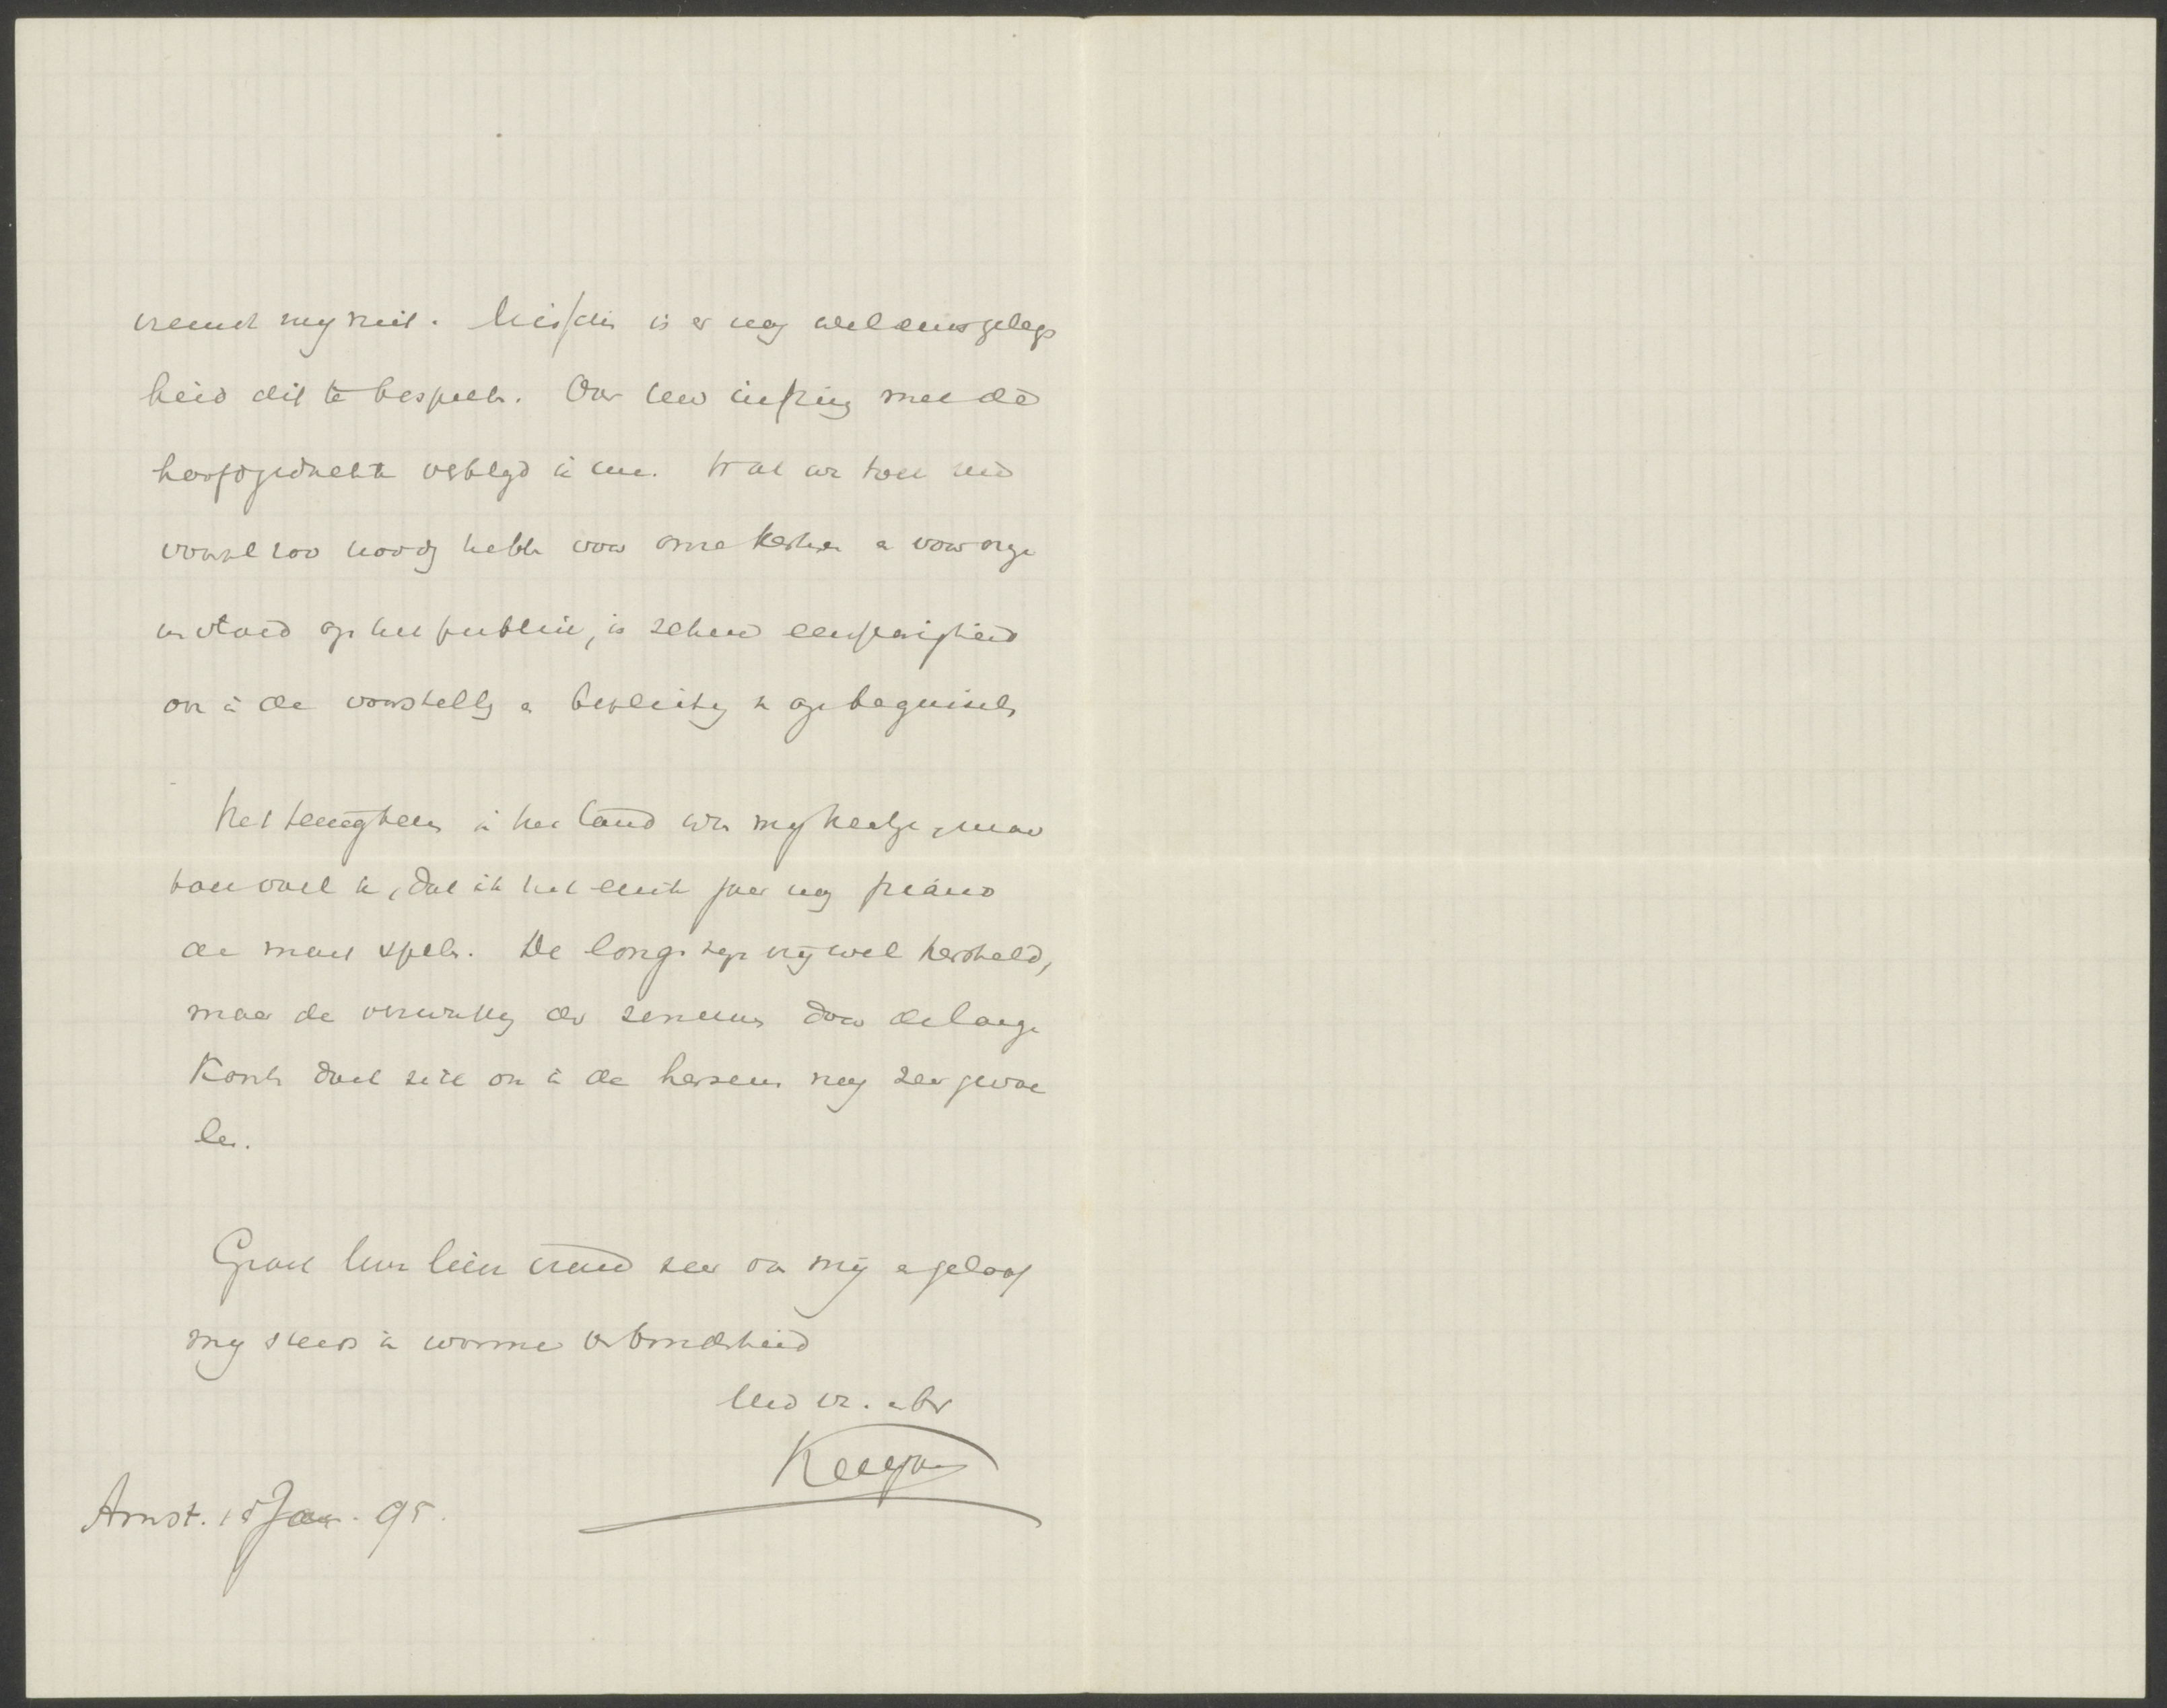 vreemd my niet. Misschien is er nog wel eens gelegen
heid dit te bespreken. Over Uw instemming met de
hoofdgedachte verblijd ik me. Wat we toch
vooral zoo noodig hebben voor onze kerken en voor onze
invloed op het publiek, is zekere eenparigheid
ook in de voorstelling en bepleiting der beginselen
Het terugkeeren in het land was my heerlijk, maar
toch voel ik, dat ik het eerste jaar nog piano
de moet spelen. De longen zijn vrywel hersteld,
maar de verzwakking der zenuwen door de lange
Koorts doet zich ook in de hersenen nog zeer gevoe
len.
Groet Uw lieve vrouw zeer van mij en geloof
my steeds in warme verbondenheid
Uw vr. en br
Kuyper
Amst. 15 Jan. 95.